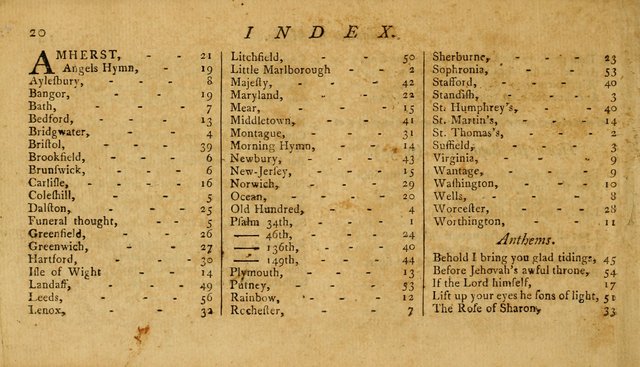 20 INDEX.
AMHERST, - - 21
Angels Hymn, - 19
Aylesbury, - - 8
Bangor, - - - 19
Bath, - - - 7
Bedford, - - - 13
Bridgwater, - - - 4
Bristol, - - - 39
Brookfield, - - - 6
Brunswick, - - - 6
Carlisle, - - - 16
Coleshill, - - - 5
Dalston, - - - 25
Funeral thought, - - 5
Greenfield, - - - 26
Greenwich, - - - 27
Hartford, - - - 30
Isle of Wight - - 14
Landaff, - - - 49
Leeds, - - - 56
Lenox, - - - 32
Litchfield, - - - 50
Little Marlborough - - 2
Majesty, - - - 42
Maryland, - - - 22
Mear, - - - 15
Middletown, - - - 41
Montague, - - - 31
Morning Hymn, - - 14
Newbury, - - - 43
New-Jersey, - - - 15
Norwich, - - - 29
Ocean, - - - 20
Old Hundred, - - - 4
Psalm 34th, - - - 1
—— 46th, - - - 24
—— 136th, - - - 40
—— 149th, - - - 44
Plymouth, - - - 13
Putney, - - - 53
Rainbow, - - - 12
Rochester, - - - 7
Sherburne, - - - 23
Sophronia, - - - 53
Stafford, - - - 40
Standish, - - - 3
St. Humphrey's, - - 40
St. Martin's, - - 14
St. Thomas's, - - 2
Suffield, - - - 3
Virginia, - - - 9
Wantage, - - - 9
Washington, - - - 10
Wells, - - - 8
Worcester, - - - 28
Worthington, - - - 11
Anthems.
Behold I bring you glad tidings, 45
Before Jehovah's awful throne, 54
If the Lord himself, - 17
Lift up your eyes he sons of light, 51
The Rose of Sharon, - 33